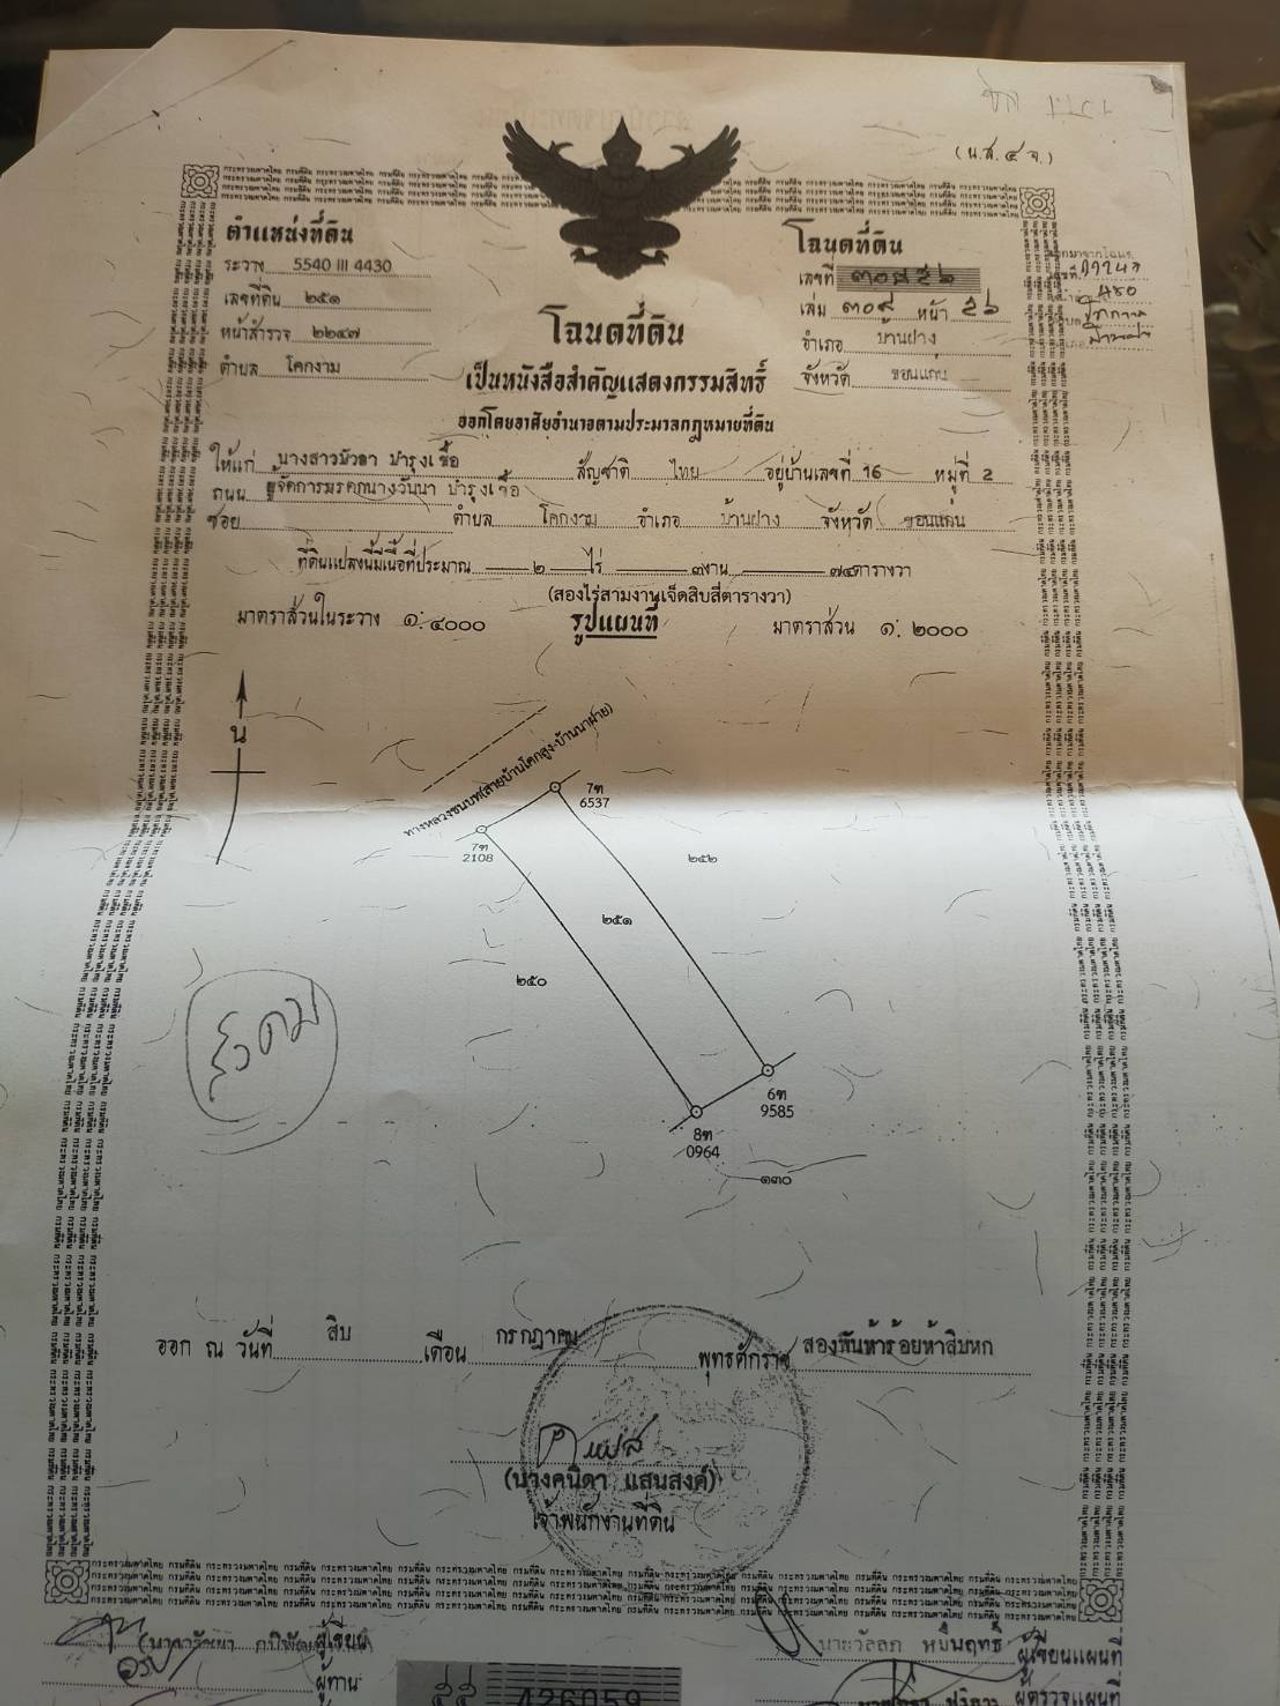 (น.ส.๔ จ.)
ตำแหน่งที่ดิน
ระวาง 5540 III 4430
เลขที่ดิน ๒๕๑
หน้าสำรวจ ๒๒๔๗
ตำบล โคกงาม
โฉนดที่ดิน
เลขที่ ๓๐๘๕๖
เล่ม ๓๐๙ หน้า ๕๖
อำเภอ บ้านฝาง
จังหวัด ขอนแก่น
โฉนดที่ดิน
เป็นหนังสือสำคัญแสดงกรรมสิทธิ์
ออกโดยอาศัยอำนาจตามประมวลกฎหมายที่ดิน
ให้แก่ นางสาวบัวลา บำรุงเชื้อ สัญชาติ ไทย อยู่บ้านเลขที่ 16 หมู่ที่ 2
ถนน ผู้จัดการมรดกนางวันนา บำรุงเชื้อ
ซอย ตำบล โคกงาม อำเภอ บ้านฝาง จังหวัด ขอนแก่น
ที่ดินแปลงนี้มีเนื้อที่ประมาณ ๒ ไร่ ๓ งาน ๗๔ ตารางวา
(สองไร่สามงานเจ็ดสิบสี่ตารางวา)
มาตราส่วนในระวาง ๑:๔๐๐๐ รูปแผนที่ มาตราส่วน ๑:๒๐๐๐
น
ทางหลวงชนบท(สายบ้านโคกสูง-บ้านนาฝาย)
7ฑ
6537
7ฑ
2108
๒๕๒
๒๕๑
๒๕๐
6ฑ
9585
8ฑ
0964
๑๓๐
ออก ณ วันที่ สิบ เดือน กรกฎาคม พุทธศักราช สองพันห้าร้อยห้าสิบหก
(นางคนิดา แสนสงค์)
เจ้าพนักงานที่ดิน
ผู้เขียน
นายวัลลภ หมื่นฤทธิ์ ผู้เขียนแผนที่
ผู้ทาน
ผู้ตรวจแผนที่
426059